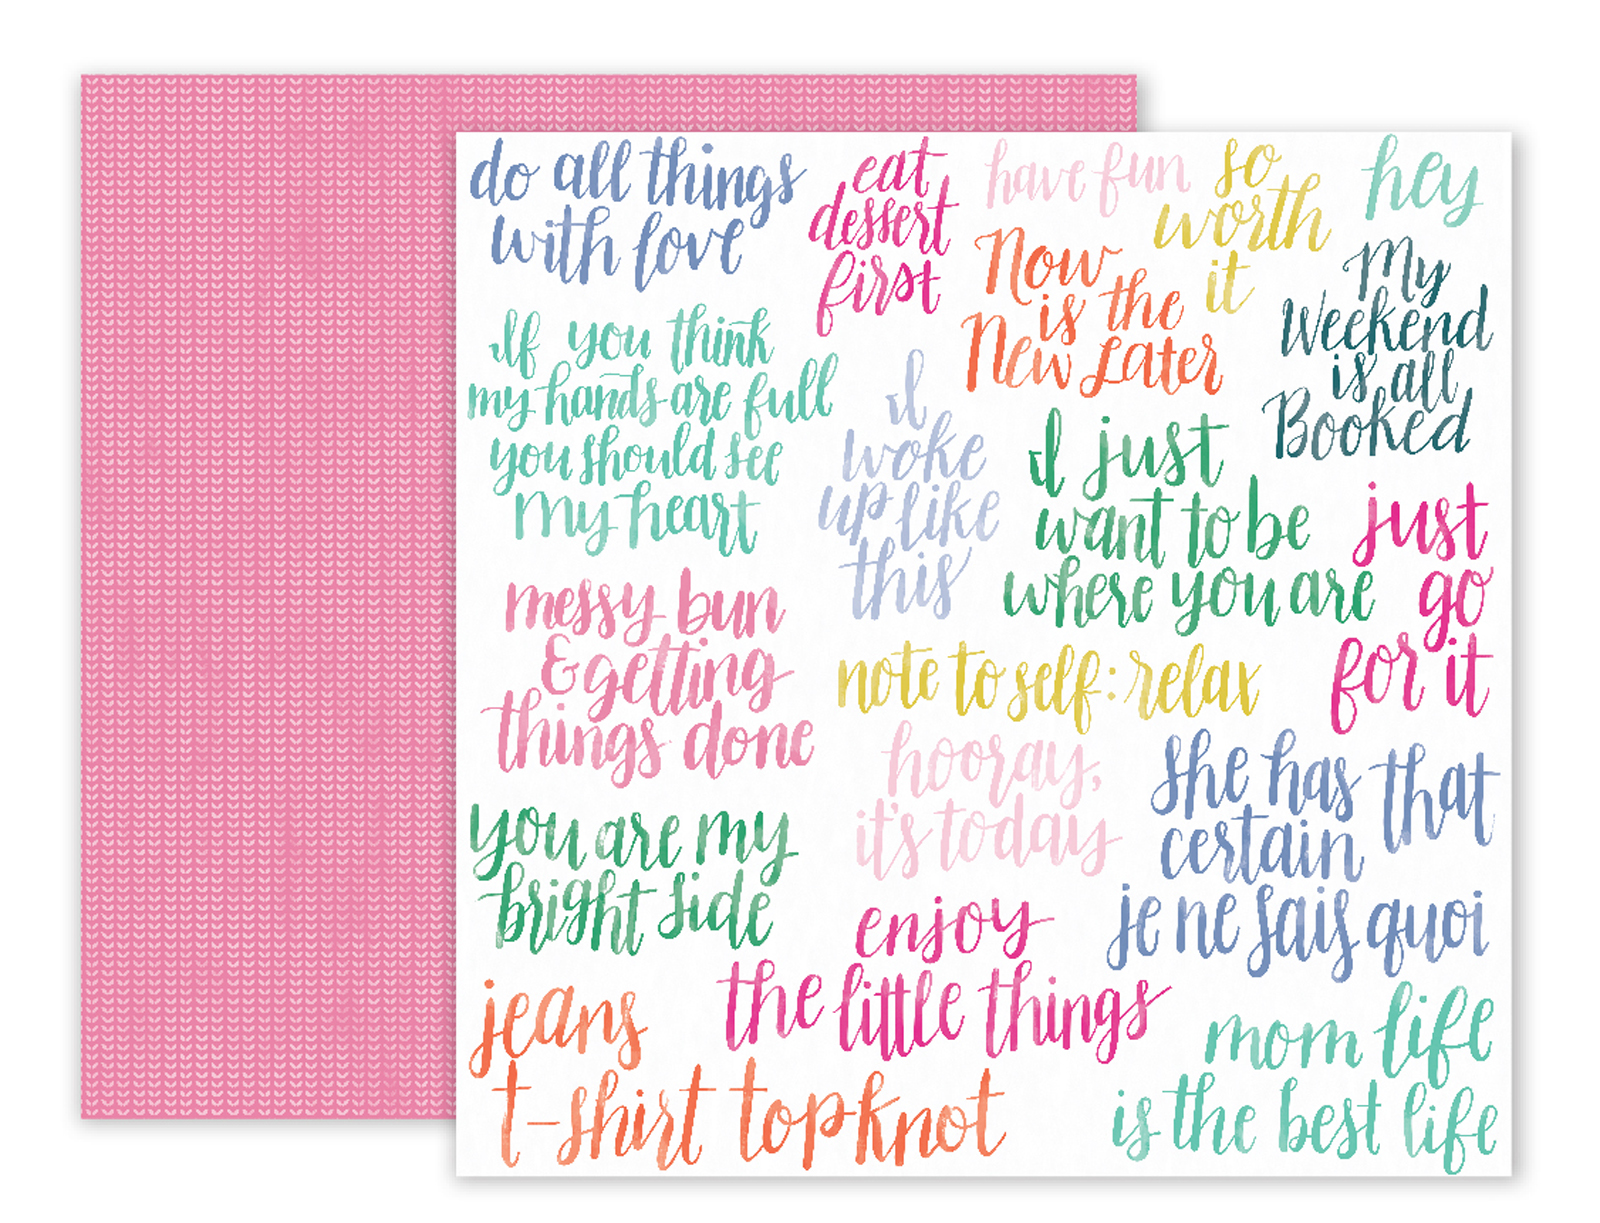 do all things
with love
eat
dessert
first
have fun
so
worth
it
hey
Now
is the
New Later
My
Weekend
is all
Booked
If you think
my hands are full
you should see
my heart
I
woke
up like
this
I just
want to be
where you are
just
go
for it
messy bun
& getting
things done
note to self: relax
hooray,
it's today
she has that
certain
je ne sais quoi
you are my
bright side
enjoy
the little things
jeans
t-shirt topknot
mom life
is the best life